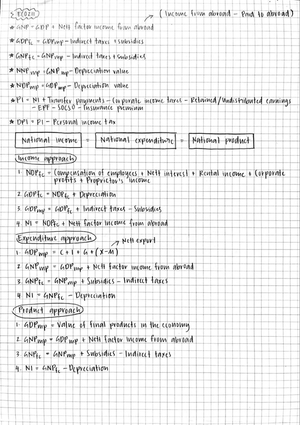 (Income from abroad - Paid to abroad)
* GNP = GDP + Nett factor income from abroad
* GDPfc = GDPmp - Indirect taxes + subsidies
* GNPfc = GNPmp - Indirect taxes + subsidies
* NNPmp = GNPmp - Depreciation value
* NDPmp = GDPmp - Depreciation value
* PI = NI + Transfer payments - Corporate income taxes - Retained / Undistributed earnings
- EPF - SOCSO - Insurance premium
* DPI = PI - Personal income tax
National income = National expenditure = National product
Income approach
1. NDPfc = Compensation of employees + Nett interest + Rental income + Corporate
profits + Proprietor's income
2. GDPfc = NDPfc + Depreciation
3. GDPmp = GDPfc + Indirect taxes - Subsidies
4. NI = NDPfc + Nett factor income from abroad
Expenditure approach
Nett export
1. GDPmp = C + I + G + (X-M)
2. GNPmp = GDPmp + Nett factor income from abroad
3. GNPfc = GNPmp + Subsidies - Indirect taxes
4. NI = GNPfc - Depreciation
Product approach
1. GDPmp = Value of final products in the economy
2. GNPmp = GDPmp + Nett factor income from abroad
3. GNPfc = GNPmp + Subsidies - Indirect taxes
4. NI = GNPfc - Depreciation